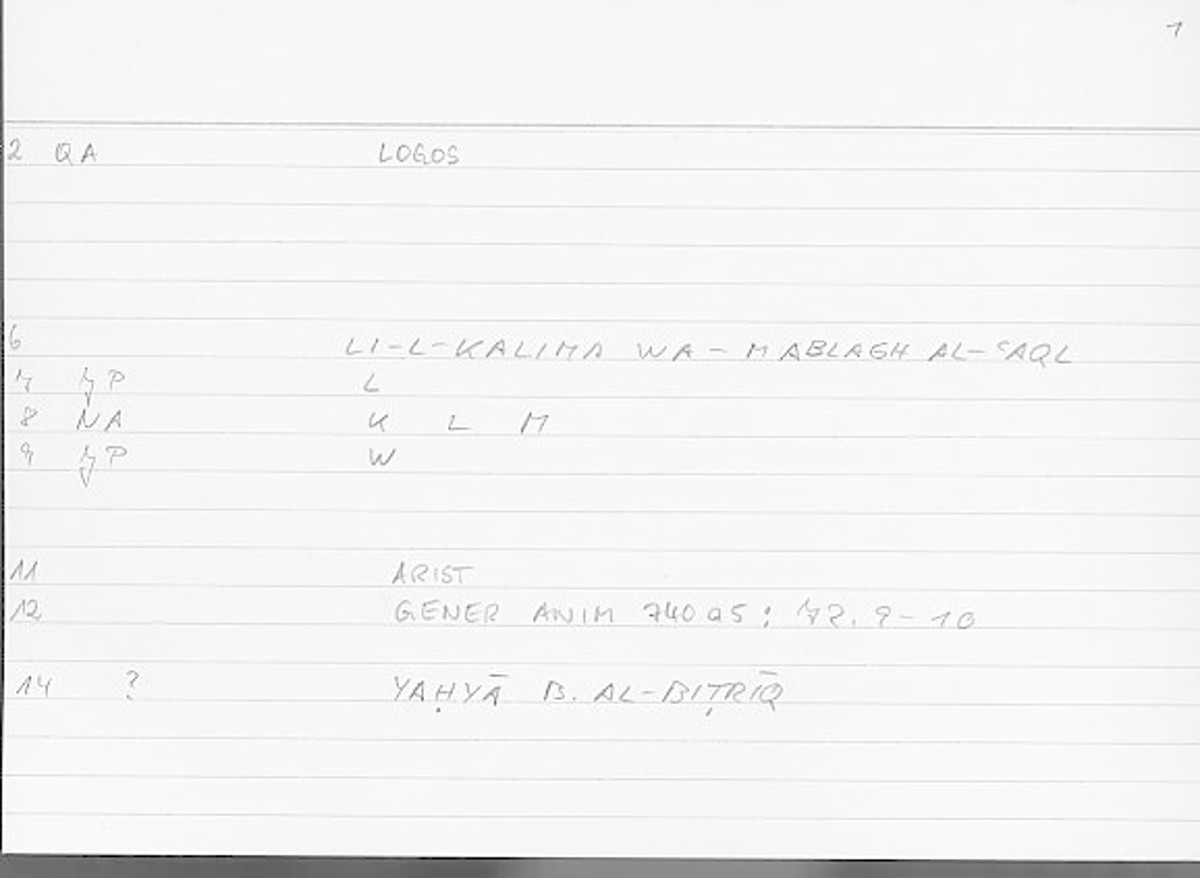 1
2 QA LOGOS
6 LI-L-KALIMA WA-MABLAGH AL-ʿAQL
7 P L
8 NA K L M
9 P W
11 ARIST
12 GENER ANIM 740a5: 72.9-10
14 ? YAḤYĀ B. AL-BIṬRĪQ